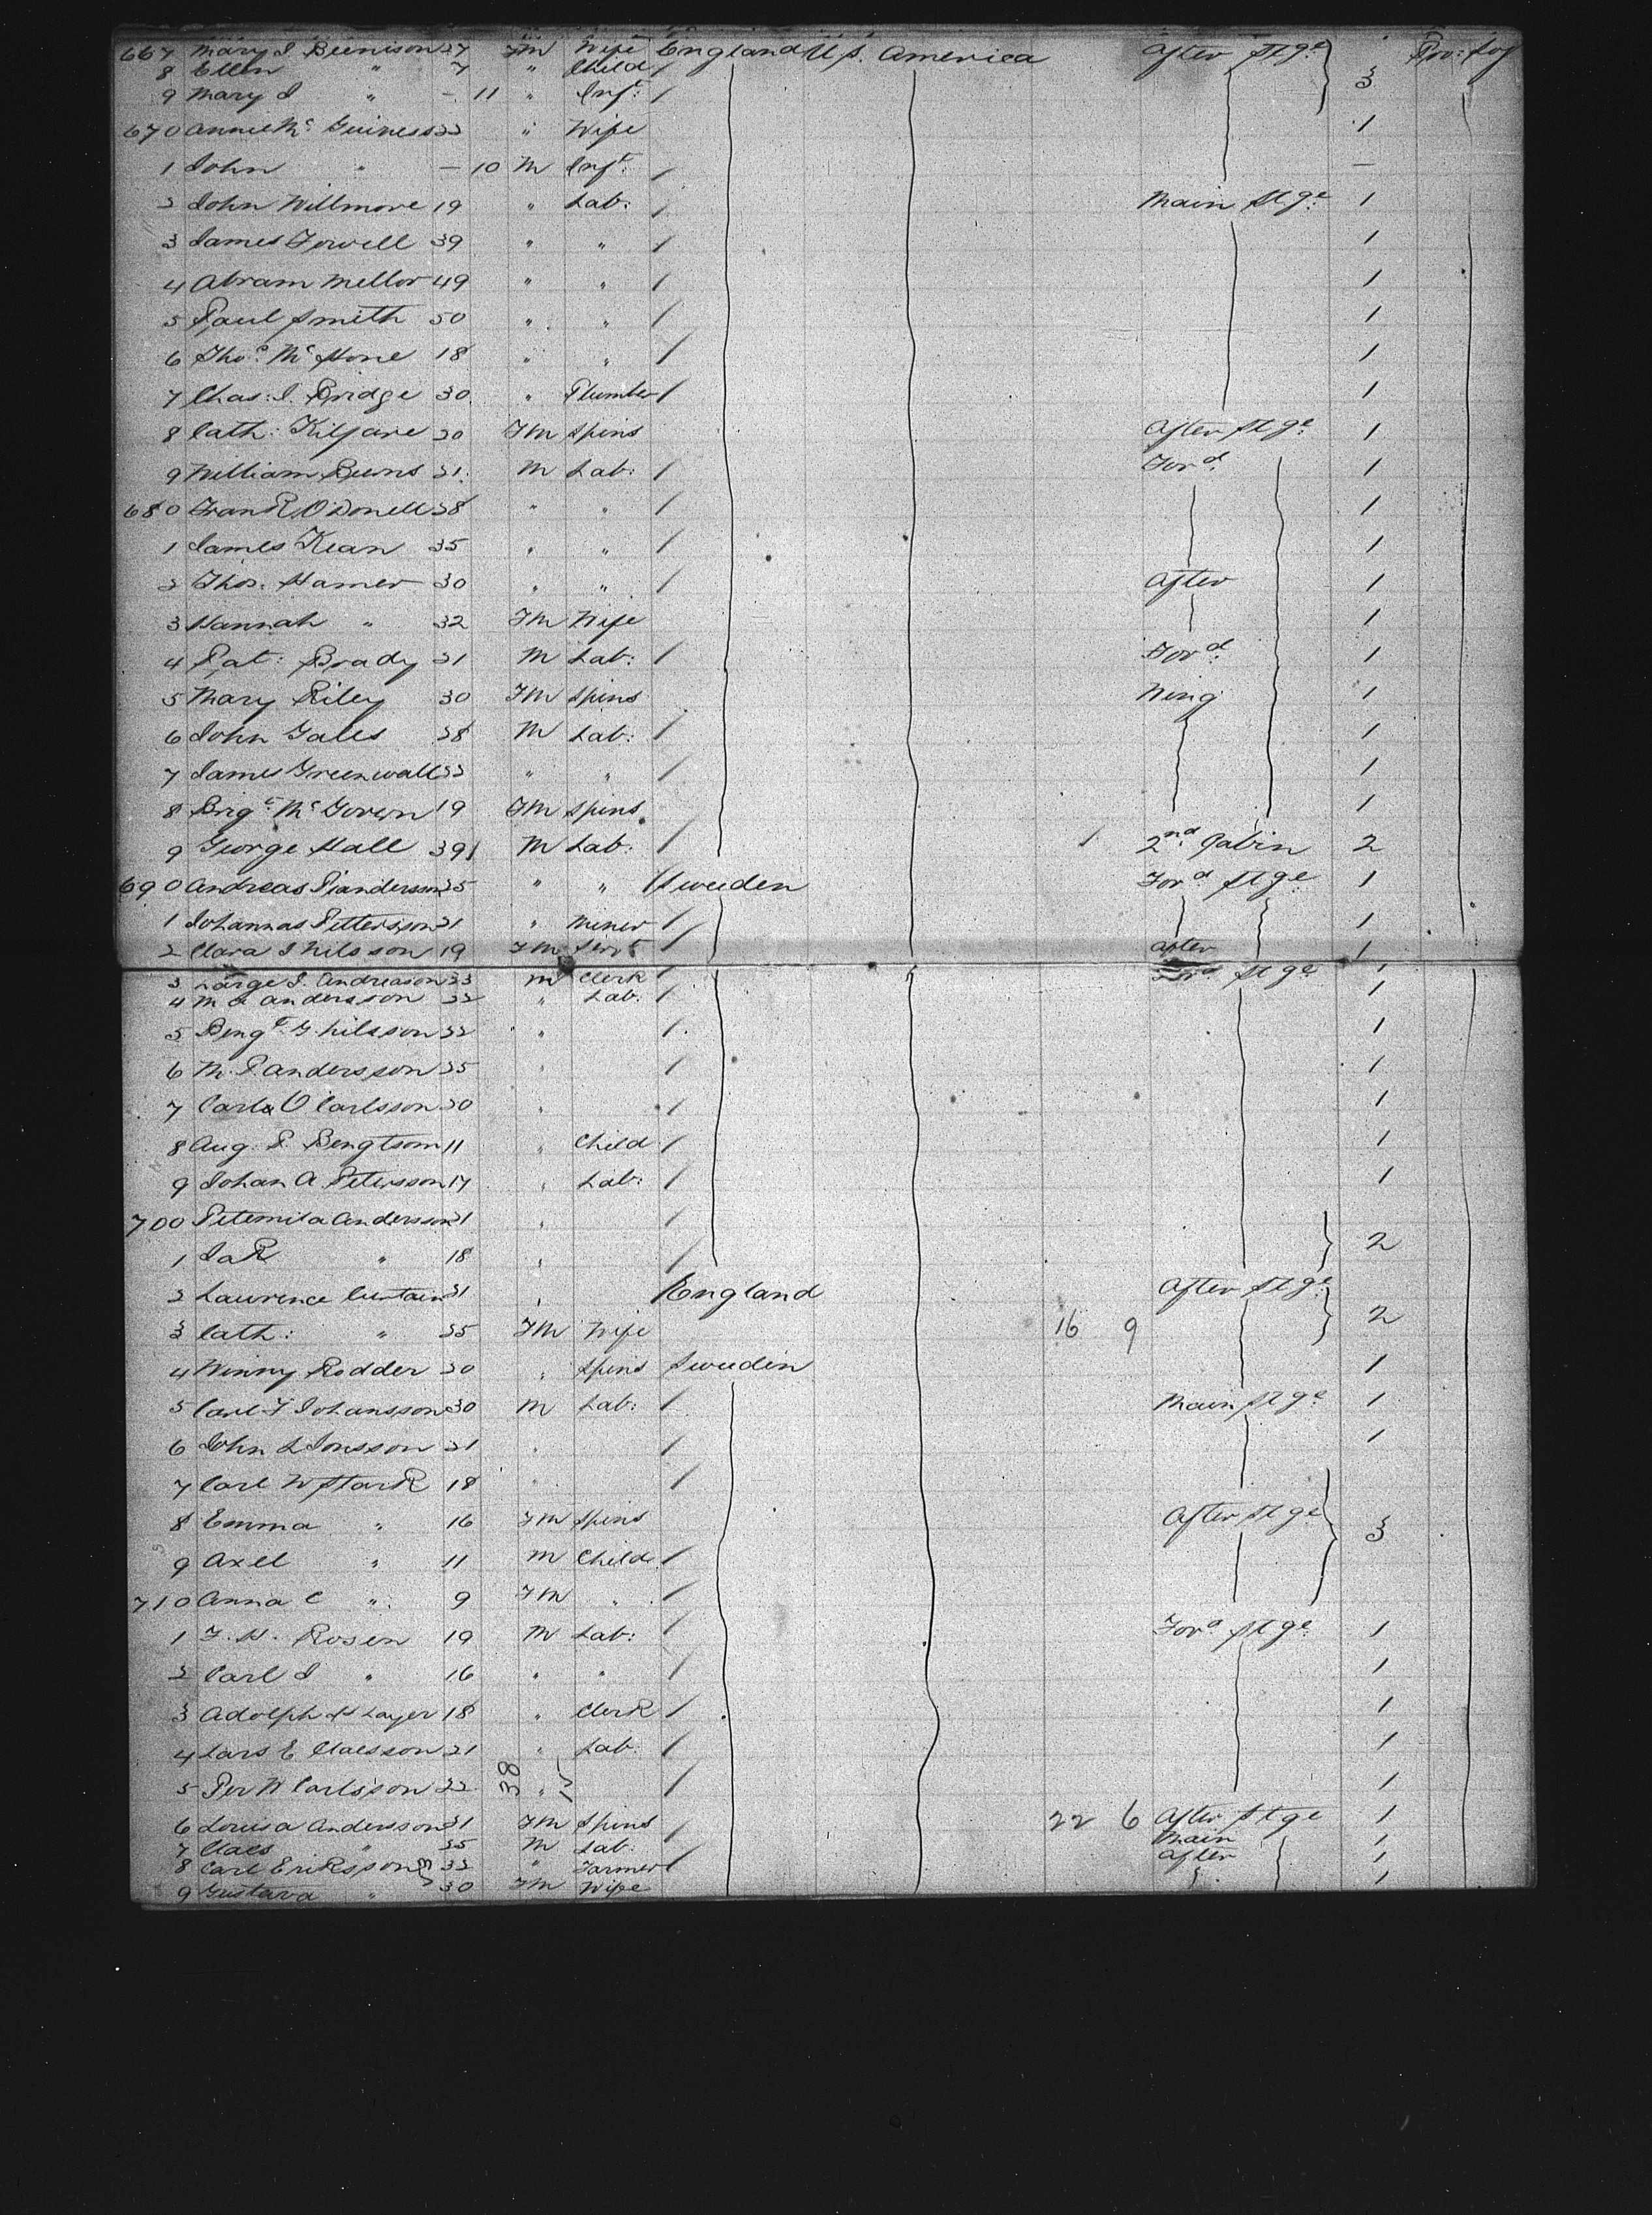 667 Mary J Beenison 27 Fm Wife England U.S. America After Stge. 3 Pro: Soj
8 Ellen " 7 " Child /
9 Mary J " - 11 " Inft. /
670 Annie Mc Guiness 22 " Wife 1
1 John " - 10 M Inft. / -
2 John Willmore 19 " Lab: / Main Stge. 1
3 James Fowell 39 " " / 1
4 Abram Mellor 49 " " / 1
5 Paul Smith 50 " " / 1
6 Thos. Mc Hone 18 " " / 1
7 Chas: J. Bridge 30 " Plumber / 1
8 Cath: Kilfare 20 Fm Spins After Stge. 1
9 William Burns 21 M Lab: / Ford. 1
680 Frank O'Donell 28 " " / 1
1 James Kean 35 " " / 1
2 Thos. Hamer 30 " " / After 1
3 Hannah " 32 Fm Wife 1
4 Pat: Brady 21 M Lab: / Ford. 1
5 Mary Riley 30 Fm Spins Wing 1
6 John Gales 28 M Lab: / 1
7 James Greenwall 22 " " / 1
8 Brigt. Mc Govern 19 Fm Spins 1
9 George Hall 39 M Lab: / 1 2nd. Cabin 2
690 Andreas Pandersson 25 " " / Sweeden Ford Stge 1
1 Johannas Petterson 21 " Miner / 1
2 Clara J Nilsson 19 Fm Servt / After 1
3 Large J. Andreason 23 M Clerk / Ford Stge 1
4 M A Andersson 22 " Lab. / 1
5 Bengt. G. Nilsson 22 " / 1
6 M. P. Andersson 25 " / 1
7 Carl O Carlsson 20 " / 1
8 Aug. P. Bengtsom 11 " Child / 1
9 Johan A Petersson 17 " Lab: / 1
700 Petemila Andersson 21 " / 2
1 Jak " 18 " /
2 Laurence Curtain 31 " / England After Stge. 2
3 Cath: " 25 Fm Wife 16 9
4 Winny Rodder 20 " Spins Sweedin 1
5 Carl F Johansson 30 M Lab: / Main Stge 1
6 John L Jonsson 21 " / 1
7 Carl W Stark 18 " /
8 Emma " 16 Fm Spins After Stge 3
9 Axel " 11 M Child /
710 Anna C " 9 Fm " /
1 F. H. Rosen 19 M Lab: / Ford Stge. 1
2 Carl J " 16 " " / 1
3 Adolph H Layer 18 " Clerk / 1
4 Lars E Claesson 21 " Lab. / 1
5 Per W Carlsson 22 38 " / 1
6 Louisa Andersson 21 Fm Spins / 22 6 After Stge 1
7 Claes " 25 M Lab. Main 1
8 Carl Eriksson 32 " Farmer / After 1
9 Gustava " 30 Fm Wife 1